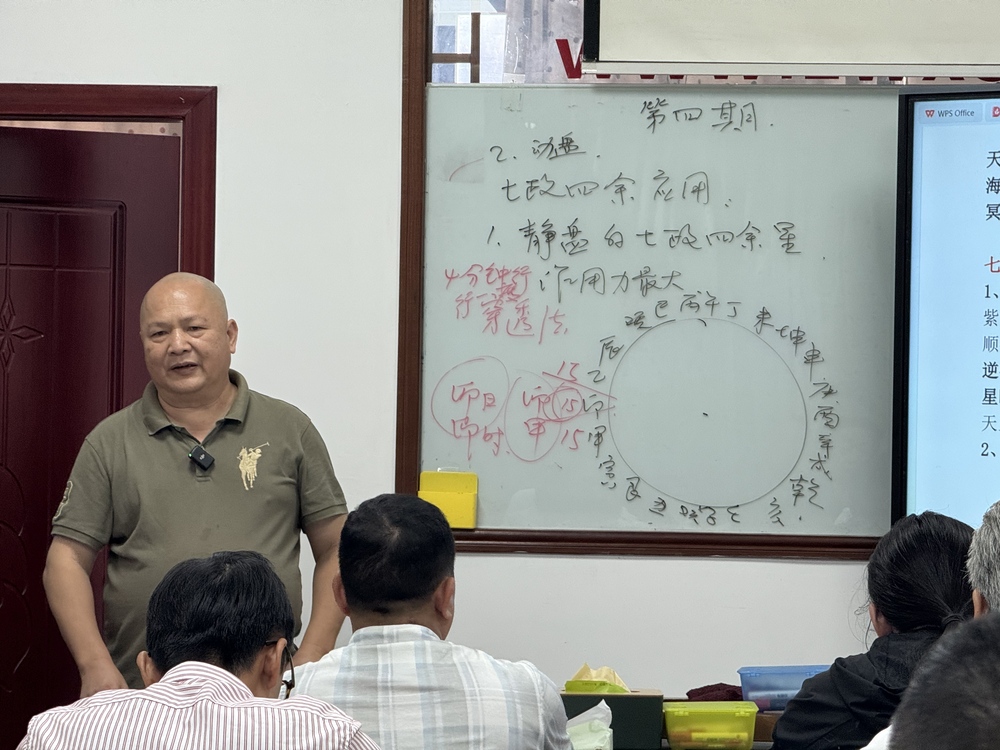 第四期.
2. 动盘.
七政四余应用:
1. 静盘的七政四余星
作用力最大
4分钟行
行一度
穿透法.
巽巳丙午丁未坤申庚酉辛戌乾亥壬子癸丑艮寅甲卯乙辰
卯日
卯时.
卯
甲
15
15
15
WPS Office
天
海
冥
七
1、
紫
顺
逆
星
天
2、